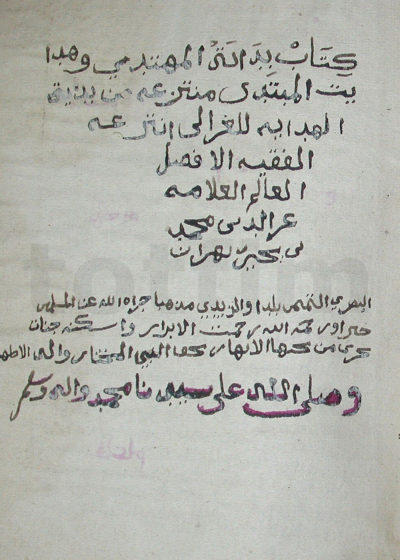 كتاب بداية المهتدي وهدا
ية المبتدى منتزعه من بداية
الهدايه للغزالى انتزعه
الفقيه الافضل
العالم العلامه
عز الدين محمد
بن يحيى بهران
البصري التميمي بلدا والزيدي مذهبا جزاه الله عن المسلمين
خيرا ورحمه الله رحمت الابرار واسكنه جنات
تجري من تحتها الانهار بحق النبي المختار واله الاطهار
وصلى الله على سيدنا محمد واله وسلم
totum